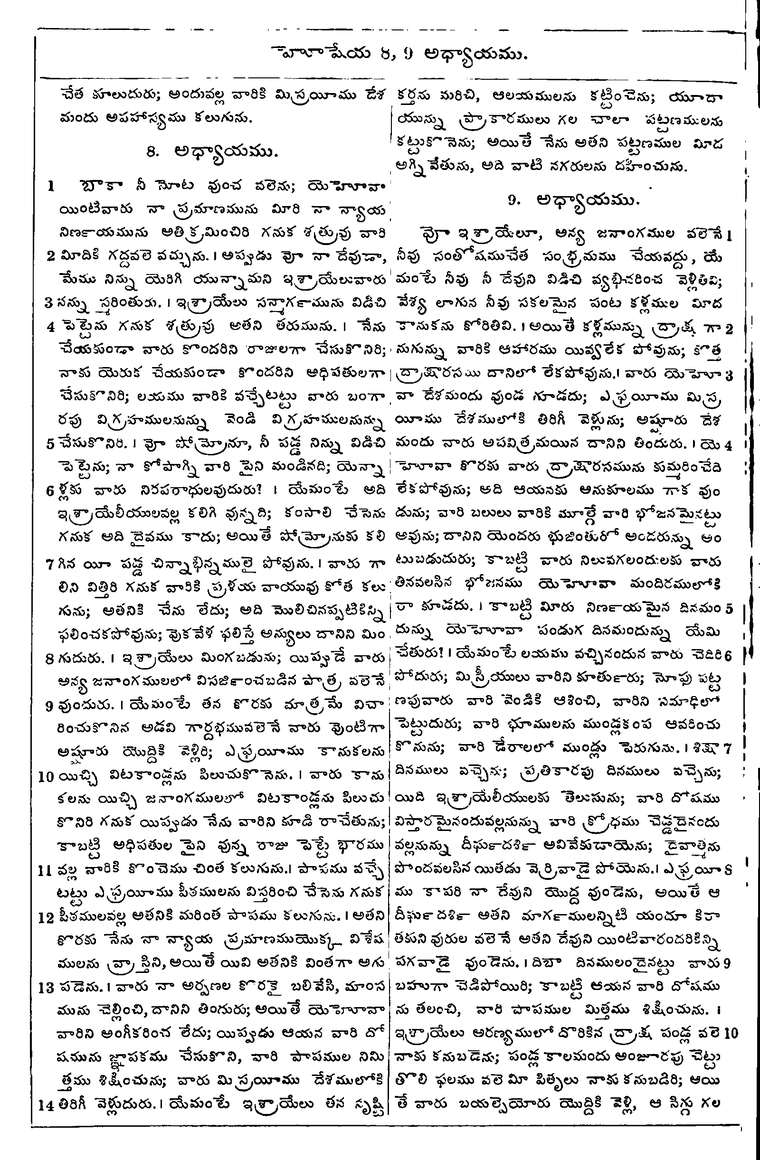 హొషేయ 8, 9 అధ్యాయము.
చేత కూలుదురు; అందువల్ల వారికి మిస్రయీము దేశ
మందు అపహాస్యము కలుగును.
8. అధ్యాయము.
1 బాకా నీ నోట వుంచ వలెను; యెహోవా
యింటివారు నా ప్రమాణమును మీరి నా న్యాయ
నిర్ణయమును అతిక్రమించిరి గనుక శత్రువు వారి
2 మీదికి గద్దవలె వచ్చును. । అప్పుడు వో నా దేవుడా,
మేము నిన్ను యెరిగి యున్నామని ఇశ్రాయేలువారు
3 నన్ను స్మరింతురు. । ఇశ్రాయేలు సన్మార్గమును విడిచి
4 పెట్టెను గనుక శత్రువు అతని తరుమును. । నేను
చేయకుండా వారు కొందరిని రాజులగా చేసుకొనిరి;
నాకు యెరుక చేయకుండా కొందరిని అధిపతులగా
చేసుకొనిరి; లయము వారికి వచ్చేటట్టు వారు బంగా
రపు విగ్రహములనున్ను వెండి విగ్రహములనున్ను
5 చేసుకొనిరి. । వో షోమ్రోనూ, నీ పడ్డ నిన్ను విడిచి
పెట్టెను; నా కోపాగ్ని వారి పైని మండినది; యెన్నా
6 ళ్లకు వారు నిరపరాధులవుదురు? । యేమంటే అది
ఇశ్రాయేలీయులవల్ల కలిగి వున్నది; కంసాలి చేసెను
గనుక అది దైవము కాదు; అయితే షోమ్రోనుకు కలి
7 గిన యీ పడ్డ చిన్నాభిన్నములై పోవును. । వారు గా
లిని విత్తిరి గనుక వారికి ప్రళయ వాయువు కోత కలు
గును; అతనికి చేను లేదు; అది మొలిచినప్పటికిన్ని
ఫలించకపోవును; వుకవేళ ఫలిస్తే అన్యులు దానిని మిం
8 గుదురు. । ఇశ్రాయేలు మింగబడును; యిప్పుడే వారు
అన్య జనాంగములలో విసర్జించబడిన పాత్ర వలెనే
9 వుందురు. । యేమంటే తన కొరకు మాత్రమే విచా
రించుకొనిన అడవి గార్దభమువలెనే వారు వుంటిగా
అష్షూరు యొద్దికి వెళ్లిరి; ఎఫ్రయీము కానుకలను
10 యిచ్చి విటకాండ్లను పిలుచుకొనెను. । వారు కాను
కలను యిచ్చి జనాంగములలో విటకాండ్లను పిలుచు
కొనిరి గనుక యిప్పుడు నేను వారిని కూడి రాచేతును;
కాబట్టి అధిపతుల పైని వున్న రాజు పెట్టే భారము
11 వల్ల వారికి కొంచెము చింత కలుగును. । పాపము వచ్చే
టట్టు ఎఫ్రయీము పీఠములను విస్తరించి చేసెను గనుక
12 పీఠములవల్ల అతనికి మరింత పాపము కలుగును. । అతని
కొరకు నేను నా న్యాయ ప్రమాణముయొక్క విశేష
ములను వ్రాస్తిని, అయితే యివి అతనికి వింతగా అగు
13 పడెను. । వారు నా అర్పణల కొరకై బలివేసి, మాంస
మును చెల్లించి, దానిని తింగురు; అయితే యెహోవా
వారిని అంగీకరించ లేదు; యిప్పుడు ఆయన వారి దో
షమును జ్ఞాపకము చేసుకొని, వారి పాపముల నిమి
త్తము శిక్షించును; వారు మిస్రయీము దేశములోకి
14 తిరిగీ వెళ్లుదురు. । యేమంటే ఇశ్రాయేలు తన సృష్టి
కర్తను మరిచి, ఆలయములను కట్టించెను; యూదా
యున్ను ప్రాకారములు గల చాలా పట్టణములను
కట్టుకొనెను; అయితే నేను అతని పట్టణముల మీద
అగ్ని వేతును, అది వాటి నగరులను దహించును.
9. అధ్యాయము.
వో ఇశ్రాయేలూ, అన్య జనాంగముల వలెనే 1
నీవు సంతోషముచేత సంభ్రమము చేయవద్దు, యే
మంటే నీవు నీ దేవుని విడిచి వ్యభిచరించ వెళ్లితివి;
వేశ్య లాగున నీవు సకలమైన పంట కళ్లముల మీద
కానుకను కోరితివి. । అయితే కళ్లమున్ను ద్రాక్ష గా 2
నుగున్ను వారికి ఆహారము యివ్వలేక పోవును; కొత్త
ద్రాక్షారసము దానిలో లేకపోవును. । వారు యెహో 3
వా దేశమందు వుండ గూడదు; ఎఫ్రయీము మిస్ర
యీము దేశములోకి తిరిగీ వెళ్లును; అష్షూరు దేశ
మందు వారు అపవిత్రమయిన దానిని తిందురు. । యె 4
హోవా కొరకు వారు ద్రాక్షారసమును కుమ్మరించేది
లేకపోవును; అది ఆయనకు అనుకూలము గాక వుం
డును; వారి బలులు వారికి మూర్ఖే వారి భోజనమైనట్టు
అవును; దానిని యెందరు భుజింతురో అందరున్ను అం
టుబడుదురు; కాబట్టి వారు నిలువగలందులకు వారు
తినవలసిన భోజనము యెహోవా మందిరములోకి
రా కూడదు. । కాబట్టి మీరు నిర్ణయమైన దినమం 5
దున్ను యెహోవా పండుగ దినమందున్ను యేమి
చేతురు? । యేమంటే లయము వచ్చినందున వారు చెదిరి 6
పోదురు; మిస్రీయులు వారిని కూర్తురు; నోఫు పట్ట
ణపువారు వారి వెండికి ఆశించి, వారిని సమాధిలో
పెట్టుదురు; వారి భూములను ముండ్లకంప ఆవరించు
కొనును; వారి డేరాలలో ముండ్లు పెరుగును. । శిక్షా 7
దినములు వచ్చెను; ప్రతికారపు దినములు వచ్చెను;
యిది ఇశ్రాయేలీయులకు తెలుసును; వారి దోషము
విస్తారమైనందువల్లనున్ను వారి క్రోధము చెడ్డదైనందు
వల్లనున్ను దీర్ఘదర్శి అవివేకుడాయెను; దైవాత్మను
పొందవలసిన యితడు వెర్రివాడై పోయెను. । ఎఫ్రాయీ 8
ము కాపరి నా దేవుని యొద్ద వుండెను, అయితే ఆ
దీర్ఘదర్శి అతని మార్గములన్నిటి యందూ కిరా
తకుని వురుల వలెనే అతని దేవుని యింటివారందరికిన్ని
పగవాడై వుండెను. । గిబా దినములందైనట్టు వారు 9
బహుగా చెడిపోయిరి; కాబట్టి ఆయన వారి దోషము
ను తలంచి, వారి పాపముల మిత్తము శిక్షించును. ।
ఇశ్రాయేలు అరణ్యములో దొరికిన ద్రాక్ష పండ్ల వలె 10
నాకు కనుబడెను; పండ్ల కాలమందు అంజూరపు చెట్టు
తొలి ఫలము వలె మీ పితృలు నాకు కనుబడిరి; అయి
తే వారు బయల్పెయోరు యొద్దికి వెళ్లి, ఆ సిగ్గు గల